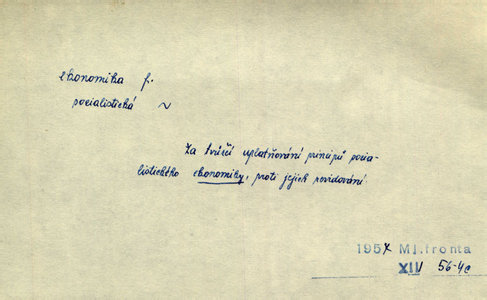 ekonomika f.
socialistická ~
Za tvůrčí uplatňování principů socia-
listického ekonomiky, proti jejich revidování.
1957 Ml. fronta
XIV 56-4c